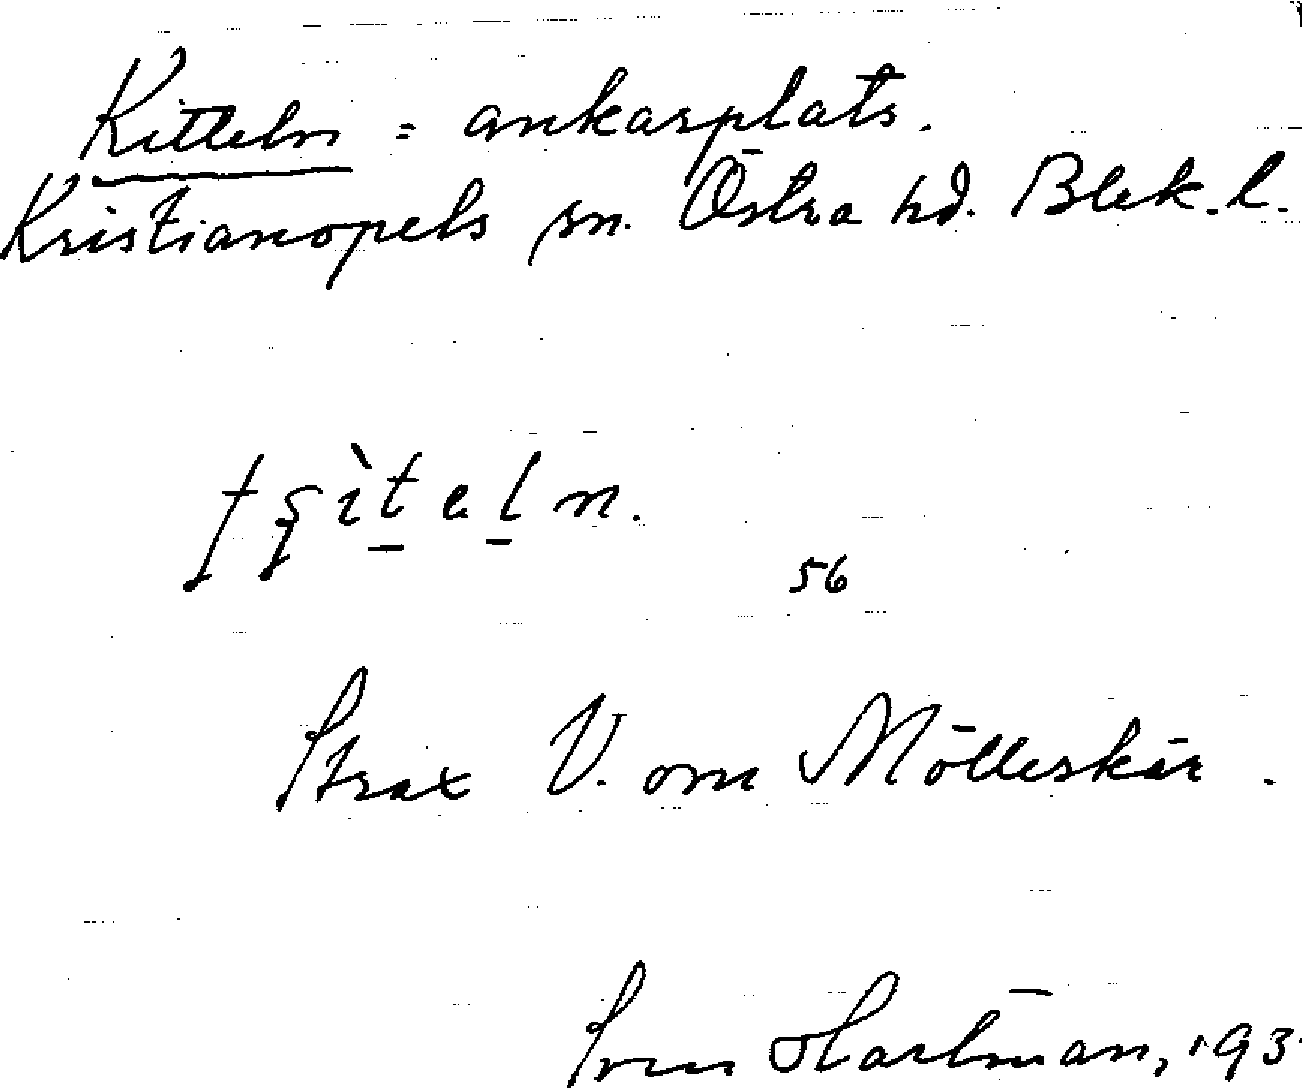 Kitteln = ankarplats.
Kristianopels sn. Östra hd. Blek. l.
56
Strax V. om Mölleskär.
Sven Hartman, 193